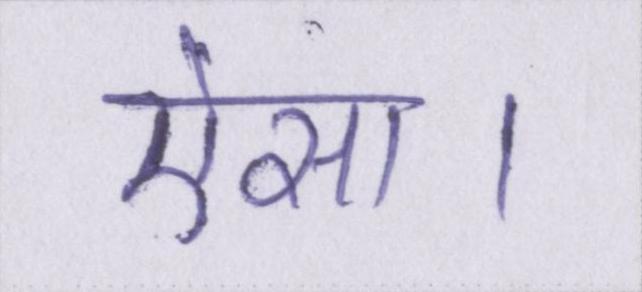 ऐसा ।